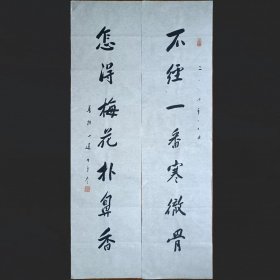 不经一番寒微骨
怎得梅花朴鼻香